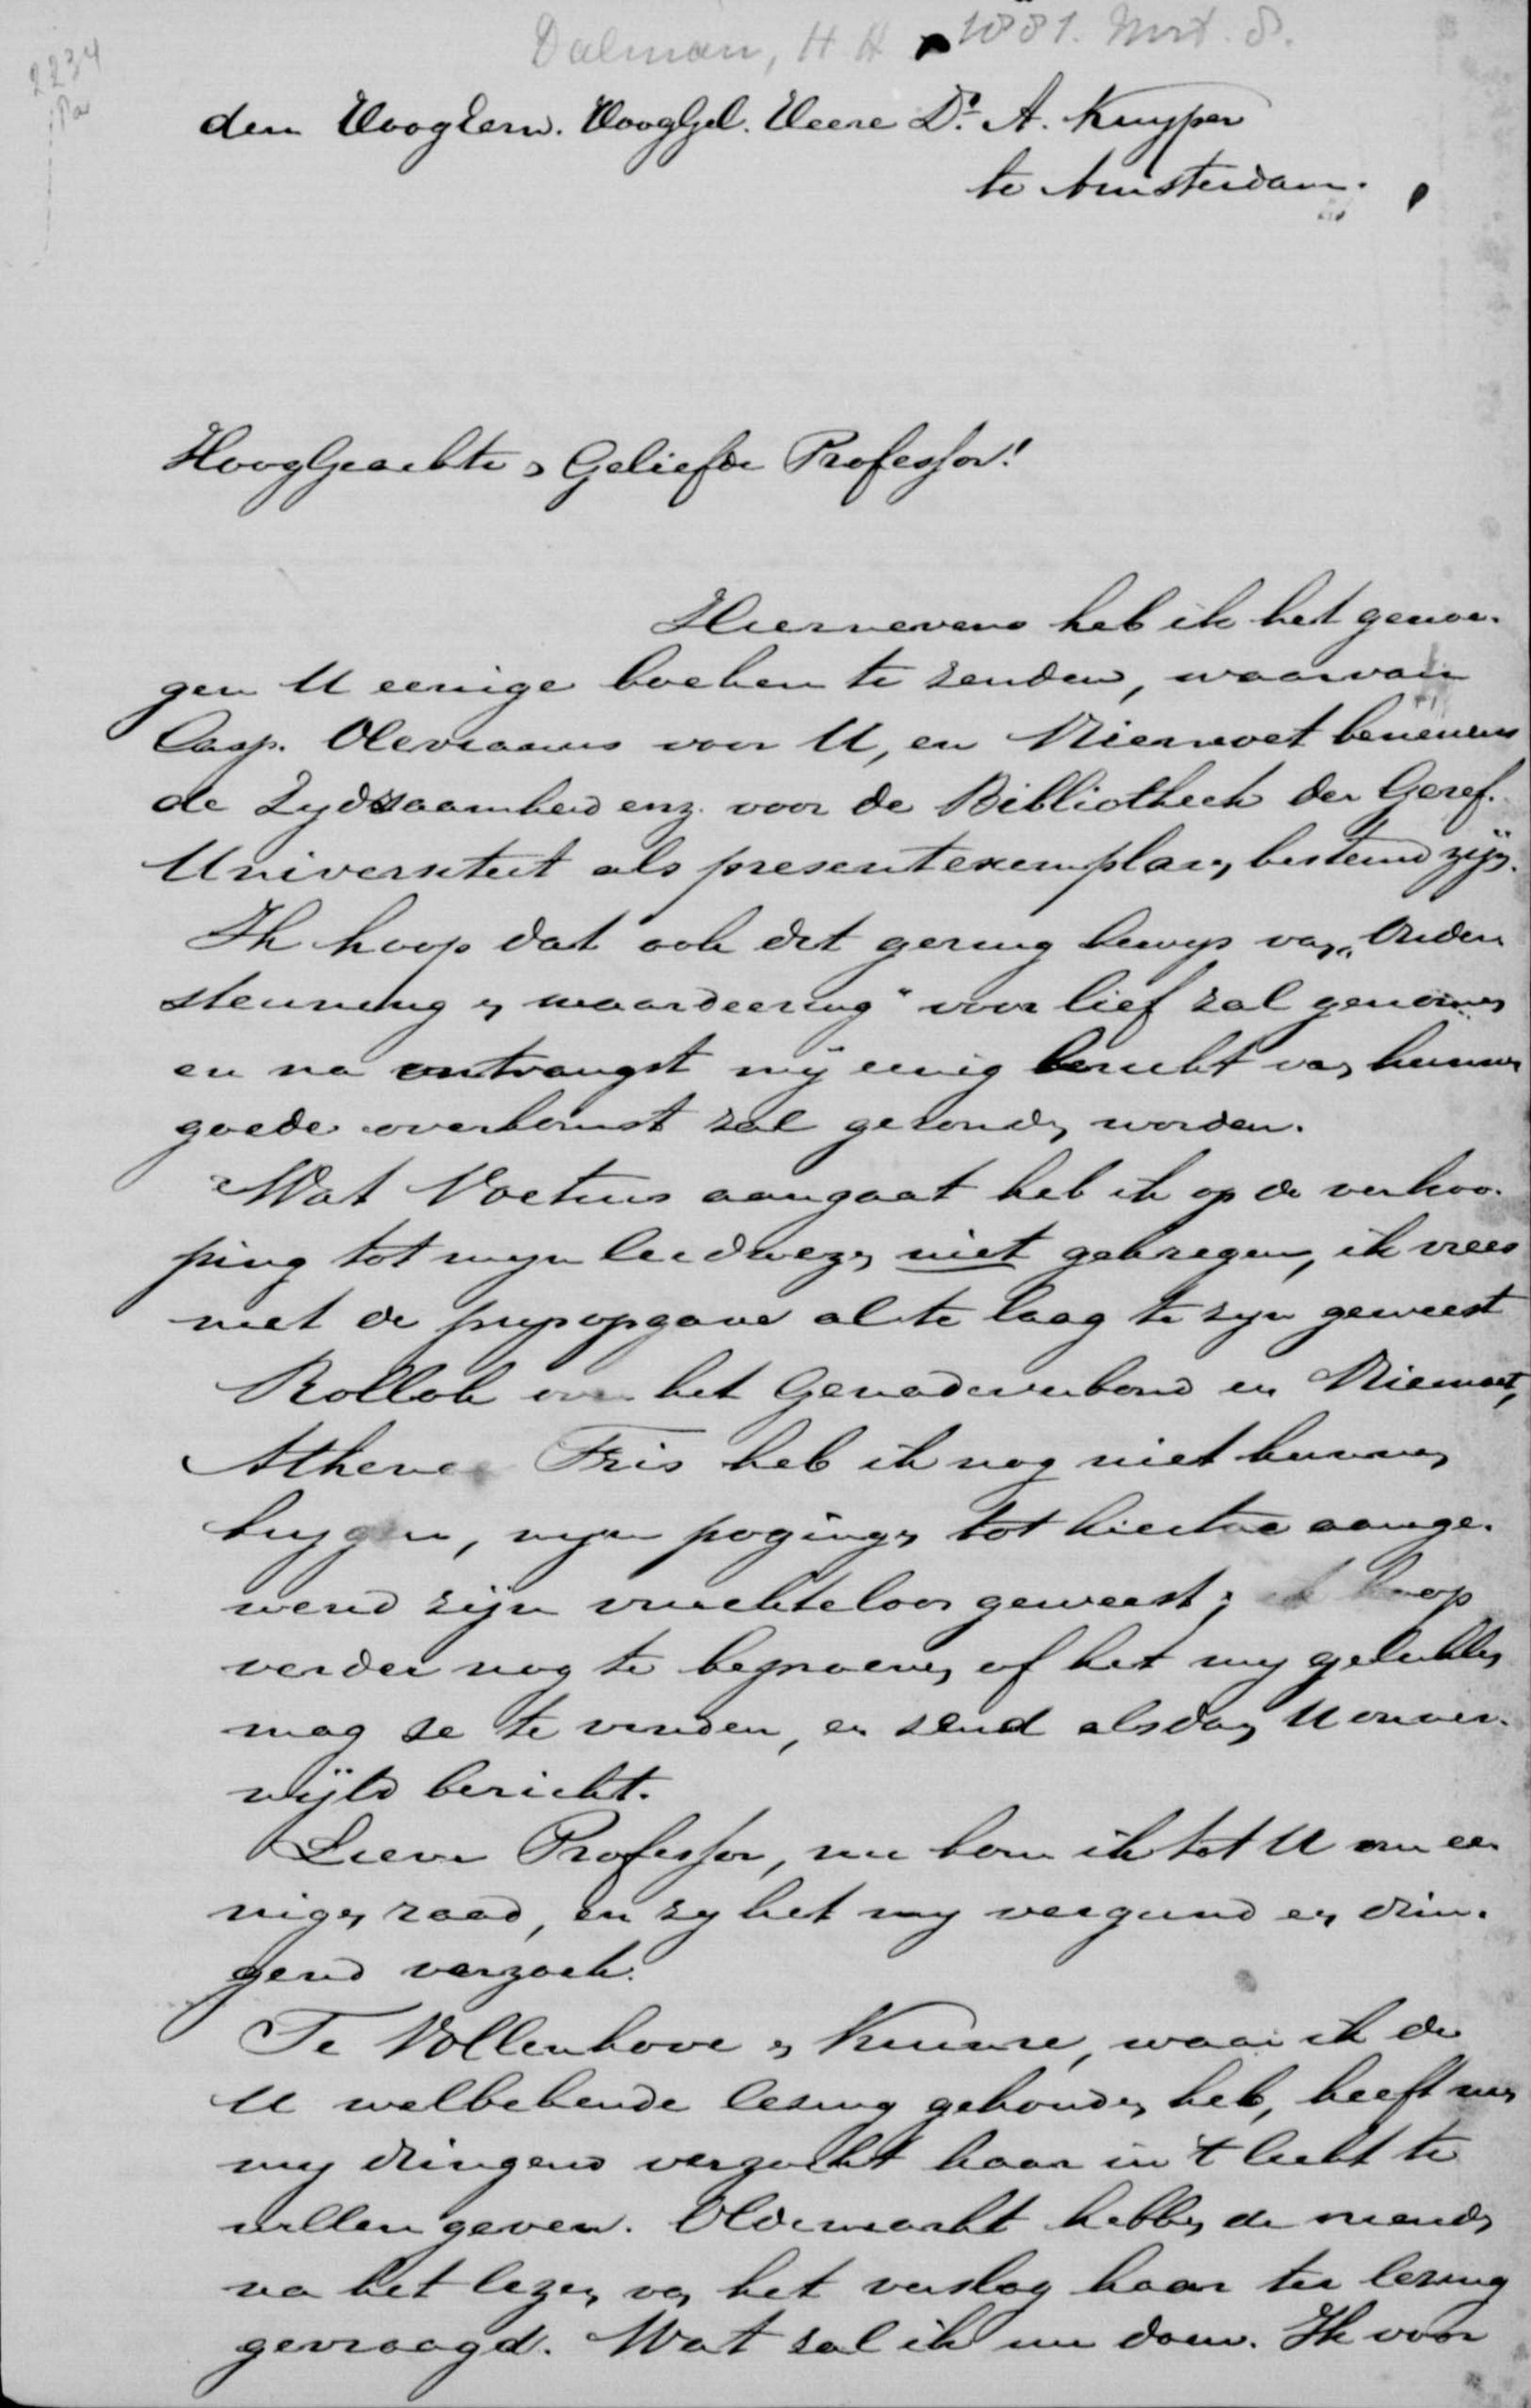 2234
Dalman, H H 1881. Mrt. 8.
den HoogEerw. HoogGel. Heere Dr. A. Kuyper
te Amsterdam.
HoogGeachte & Geliefde Professor!
Hiernevens heb ik het genoe-
gen U eenige boeken te zenden, waarvan
Casp. Olevianus voor U, en Niervoet benevens
de Lydzaamheid enz. voor de Bibliotheek der Geref.
Universiteit als presentexemplaren bestemd zijn.
Ik hoop dat ook dit gering bewijs van "Onder
steuning en waardeering" voor lief zal genomen
en na ontvangst mij eenig bericht van hunne
goede overkomst zal gezonden worden.
Wat Voetius aangaat heb ik op de verkoo-
ping tot mijn leedwezen niet gekregen, ik vrees
met de prijsopgave al te laag te zijn geweest
Rollok over het Genadeverbond en
Athene Fris heb ik nog niet kunnen
krygen, mijn pogingen tot hiertoe aange-
wend zijn vruchteloos geweest; ik hoop
verder nog te beproeven of het my gelukken
mag ze te vinden, en zend alsdan U onver-
wijld bericht.
Lieve Professor, nu kom ik tot U om ee-
nigen raad, en zy het my vergund een drin-
gend verzoek.
Te Vollenhove en Kuinre, waar ik de
U welbekende lezing gehouden heb, heeft men
my dringend verzocht haar in 't licht te
willen geven. Oldemarkt hebben de vrienden
na het lezen van het verslag haar ter lezing
gevraagd. Wat zal ik nu doen. Ik voor